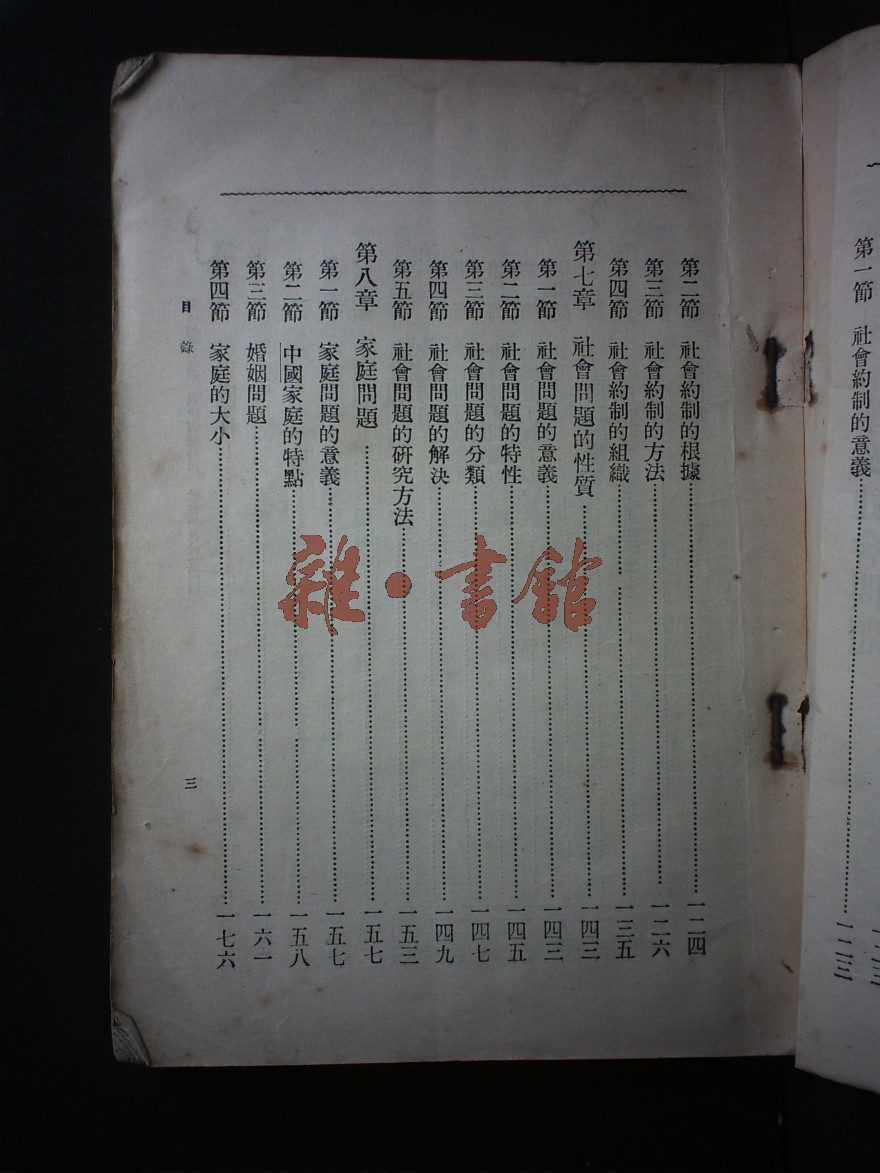 第一節　社會約制的意義……一二三
第二節　社會約制的根據……一二四
第三節　社會約制的方法……一二六
第四節　社會約制的組織……一三五
第七章　社會問題的性質……一四三
第一節　社會問題的意義……一四三
第二節　社會問題的特性……一四五
第三節　社會問題的分類……一四七
第四節　社會問題的解決……一四九
第五節　社會問題的研究方法……一五三
第八章　家庭問題……一五七
第一節　家庭問題的意義……一五七
第二節　中國家庭的特點……一五八
第三節　婚姻問題……一六一
第四節　家庭的大小……一七六
目錄
三
雜·書館